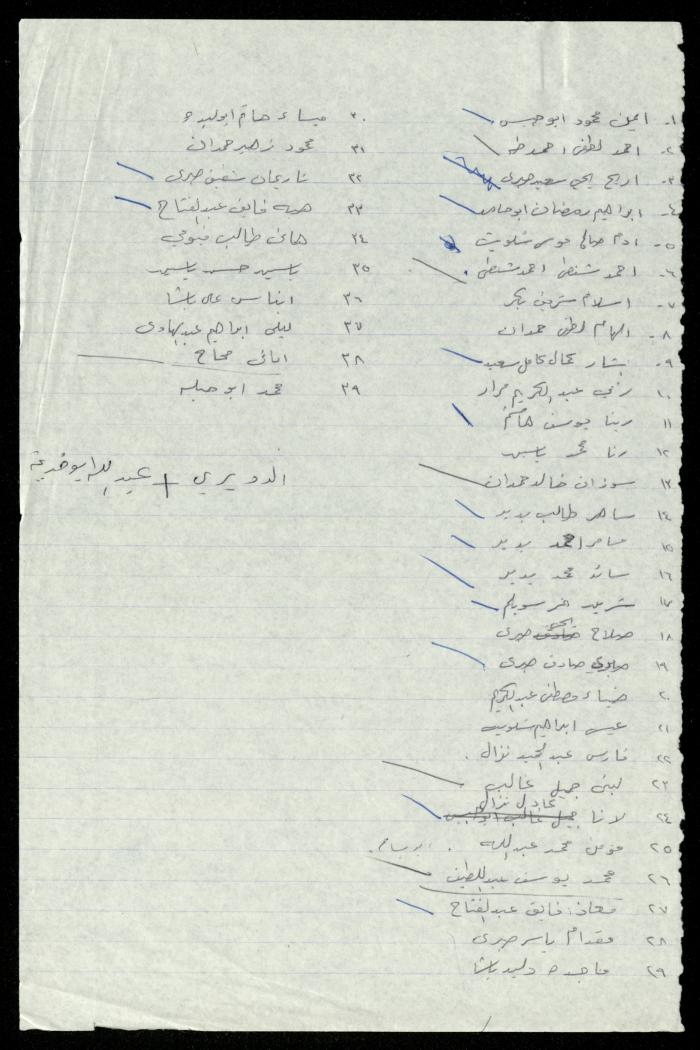 ١- ايمن محمود ابو حبس
٢- احمد لطفي احمد طه
٣- اريج يحيى سعيد صبري
٤- ابراهيم رمضان ابو حامد
٥- ادم صالح موسى شلويت
٦- احمد شنطي احمد شنطي
٧- اسلام شريف بكر
٨- الهام لطفي حمدان
٩- بشار كمال كامل سعيد
١٠ رامي عبد الكريم مرار
١١ رينا يوسف هاشم
١٢ رنا محمد ياسين
١٣ سوزان خالد حمدان
١٤ ساهر طالب بدير
١٥ سامر احمد بدير
١٦ سائد محمد بدير
١٧ شريد سويلم
١٨ صلاح صبري
١٩ صادق صبري
٢٠ ضياء مصطفى عبد الكريم
٢١ عيسى ابراهيم شلويت
٢٢ فارس عبد الحميد نزال
٢٣ لبنى جميل غالب
٢٤ لانا عادل نزال
٢٥ مؤمن محمد عبد الله
٢٦ محمد يوسف عبد اللطيف
٢٧ معاذ فايق عبد الفتاح
٢٨ مقدام ياسر صبري
٢٩ ماجدة وليد باشا
٣٠ ميساء هاشم ابو لبدة
٣١ محمود زهير حمدان
٣٢ ناريمان شفيق صبري
٣٣ هبه فايق عبد الفتاح
٣٤ هاني طالب
٣٥ ياسين حسن ياسين
٣٦ ايناس علي باشا
٣٧ ليلى ابراهيم عبد الهادي
٣٨ اماني حجاج
٣٩ محمد ابو حبله
الدويري + عبد الله ابو خديجة